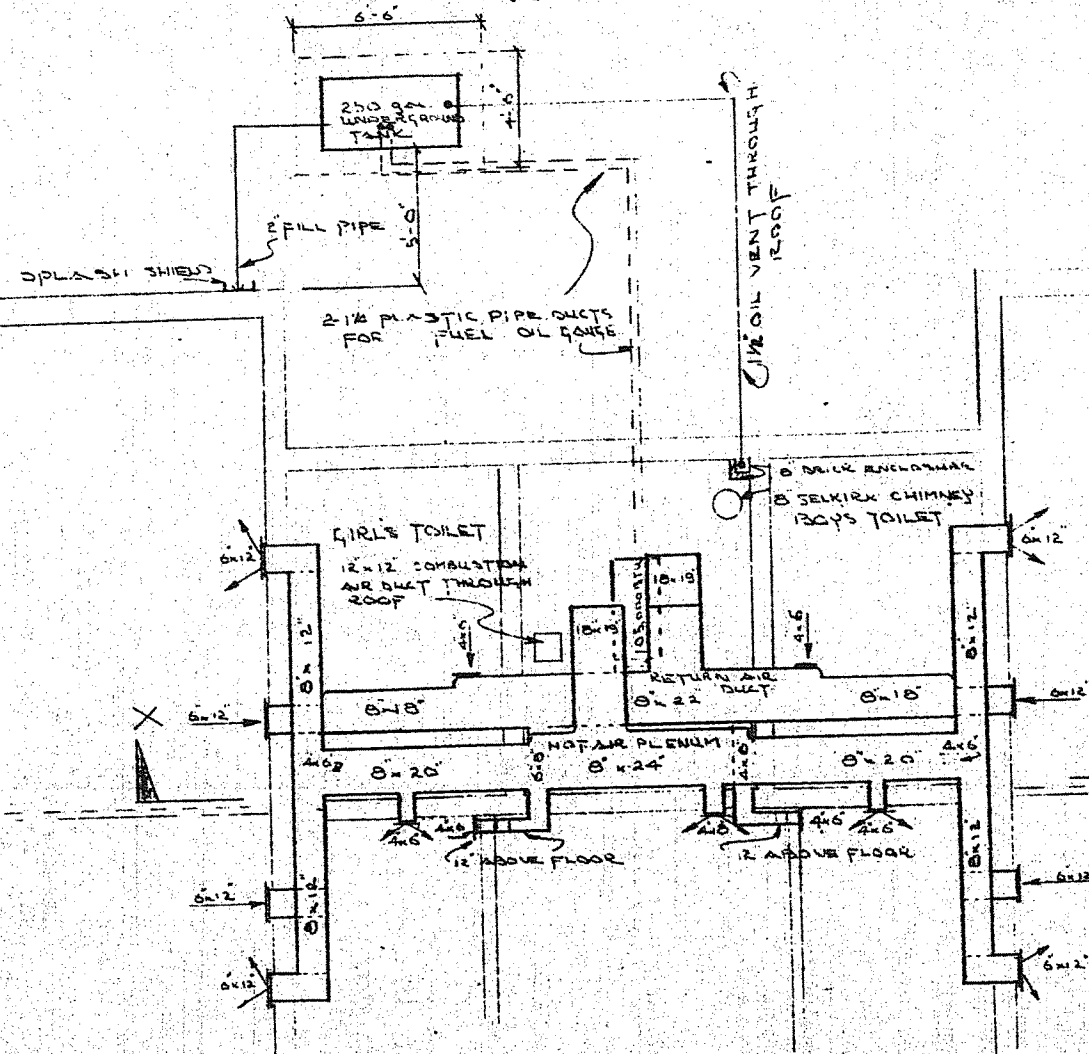 6'-6"
4'-6"
250 gal
UNDERGROUND
TANK
2" FILL PIPE
5'-0"
SPLASH SHIELD
2-1¼ PLASTIC PIPE DUCTS
FOR FUEL OIL GAUGE
1½" OIL VENT THROUGH
ROOF
8" BRICK ENCLOSURE
8 SELKIRK CHIMNEY
BOYS TOILET
GIRLS TOILET
12"x12" COMBUSTION
AIR DUCT THROUGH
ROOF
6"x12"
6"x12"
18x18
4x6
4x6
8"x12"
8"x12"
RETURN AIR
DUCT
8"x18"
8"x22"
8"x18"
6"x12"
6"x12"
HOT AIR PLENUM
4x6
8"x20"
8"x24"
8"x20"
4x6
4x6
4x6
4x6
4x6
4x6
12" ABOVE FLOOR
12" ABOVE FLOOR
6"x12"
8"x12"
8"x12"
6"x12
6x12"
6"x12"